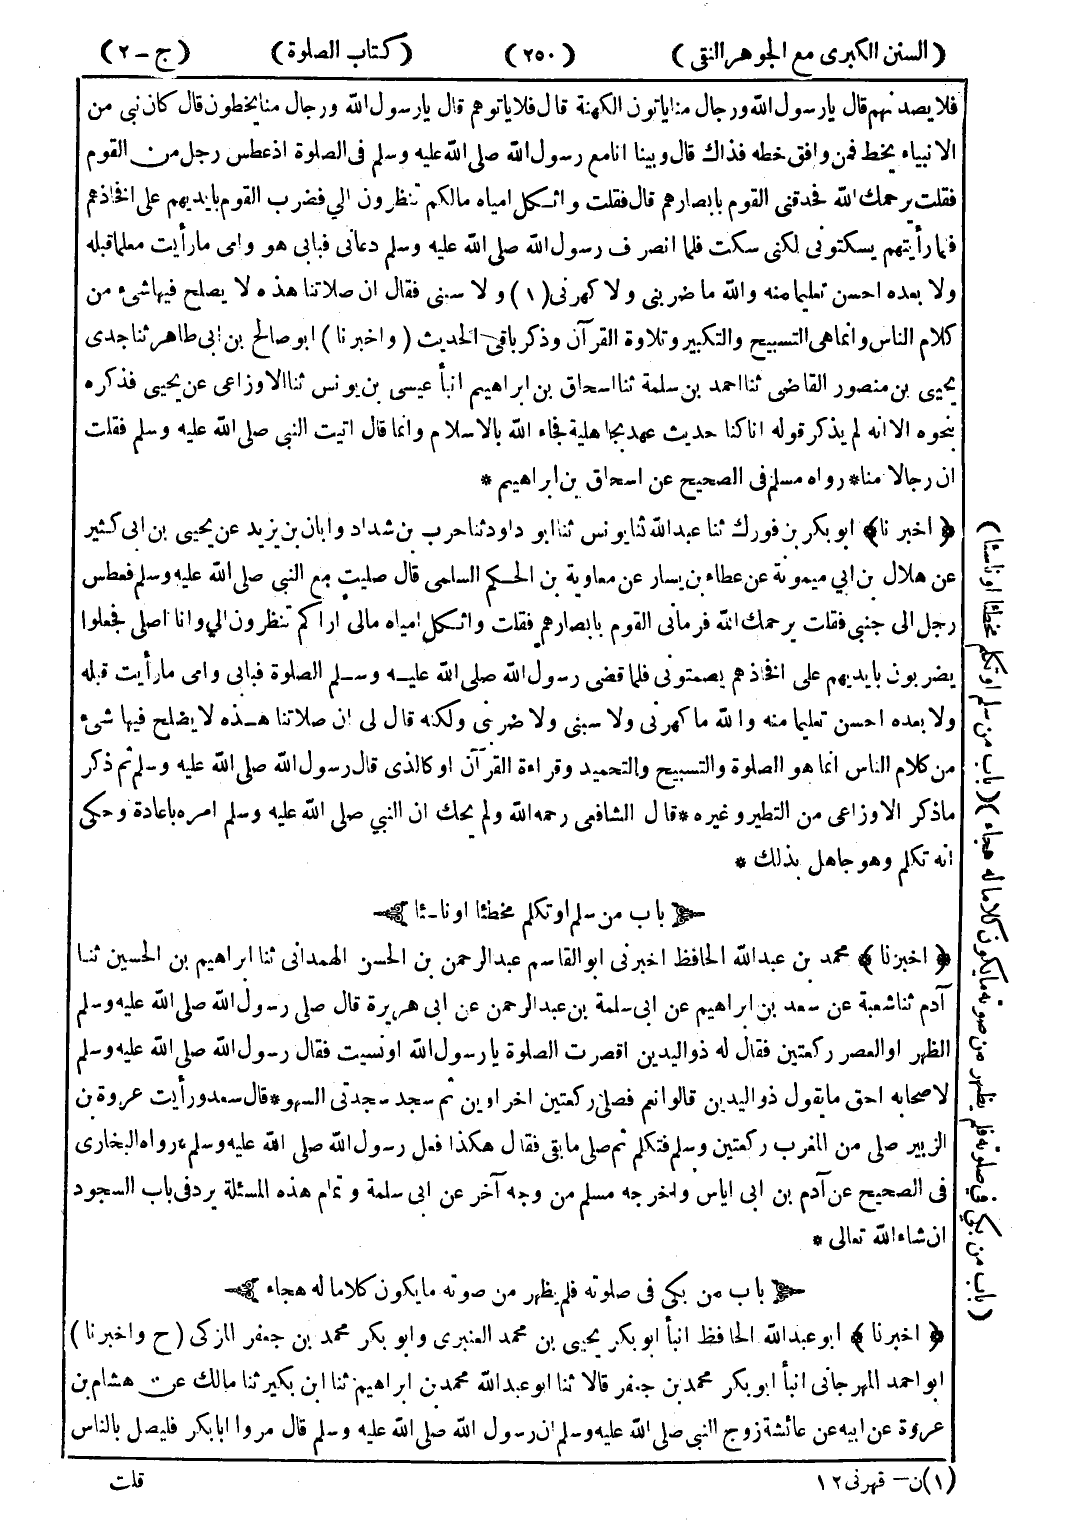 (السنن الكبرى مع الجوهر النقى) (٢٥٠) (كتاب الصلوة) (ج-٢)
فلا يصدنهم قال يا رسول الله ورجال منا ياتون الكهنة قال فلا ياتوهم قال يا رسول الله ورجال منا يخطون قال كان نبى من
الانبياء يخط فمن وافق خطه فذاك قال وبينا انا مع رسول الله صلى الله عليه وسلم فى الصلوة اذ عطس رجل من القوم
فقلت يرحمك الله فحدقنى القوم بابصارهم قال فقلت واثكل امياه مالكم تنظرون الي فضرب القوم بايديهم على افخاذهم
فلما رأيتهم يسكتونى لكنى سكت فلما انصرف رسول الله صلى الله عليه وسلم دعانى فبابى هو وامى ما رأيت معلما قبله
ولا بعده احسن تعليما منه والله ما ضربنى ولا كهرنى (١) ولا سبنى فقال ان صلاتنا هذه لا يصلح فيها شىء من
كلام الناس وانما هى التسبيح والتكبير وتلاوة القرآن وذكر باقى الحديث (واخبرنا) ابو صالح بن ابى طاهر ثنا جدى
يحيى بن منصور القاضى ثنا احمد بن سلمة ثنا اسحاق بن ابراهيم انبأ عيسى بن يونس ثنا الاوزاعى عن يحيى فذكره
بنحوه الا انه لم يذكر قوله انا كنا حديث عهد بجاهلية فجاء الله بالاسلام وانما قال اتيت النبى صلى الله عليه وسلم فقلت
ان رجالا منا* رواه مسلم فى الصحيح عن اسحاق بن ابراهيم *
﴿اخبرنا﴾ ابو بكر بن فورك ثنا عبدالله ثنا يونس ثنا ابو داود ثنا حرب بن شداد وابان بن يزيد عن يحيى بن ابى كثير
عن هلال بن ابي ميمونة عن عطاء بن يسار عن معاوية بن الحكم السلمى قال صليت مع النبى صلى الله عليه وسلم فعطس
رجل الى جنبى فقلت يرحمك الله فرمانى القوم بابصارهم فقلت واثكل امياه مالى اراكم تنظرون الي وانا اصلى فجعلوا
يضربون بايديهم على افخاذهم يصمتونى فلما قضى رسول الله صلى الله عليه وسلم الصلوة فبابى وامى ما رأيت قبله
ولا بعده احسن تعليما منه والله ما كهرنى ولا سبنى ولا ضربنى ولكنه قال لى ان صلاتنا هذه لا يصلح فيها شىء
من كلام الناس انما هو الصلوة والتسبيح والتحميد وقراءة القرآن او كالذى قال رسول الله صلى الله عليه وسلم ثم ذكر
ما ذكر الاوزاعى من التطير وغيره *قال الشافعى رحمه الله ولم يحك ان النبي صلى الله عليه وسلم امره باعادة وحكى
انه تكلم وهو جاهل بذلك *
باب من سلم او تكلم مخطئا او ناسئا
﴿اخبرنا﴾ محمد بن عبدالله الحافظ اخبرنى ابو القاسم عبدالرحمن بن الحسن الهمدانى ثنا ابراهيم بن الحسين ثنا
آدم ثنا شعبة عن سعد بن ابراهيم عن ابى سلمة بن عبدالرحمن عن ابى هريرة قال صلى رسول الله صلى الله عليه وسلم
الظهر او العصر ركعتين فقال له ذواليدين اقصرت الصلوة يا رسول الله او نسيت فقال رسول الله صلى الله عليه وسلم
لاصحابه احق ما يقول ذواليدين قالوا نعم فصلى ركعتين اخراوين ثم سجد سجدتى السهو*قال سعد ورأيت عروة بن
الزبير صلى من المغرب ركعتين وسلم فتكلم ثم صلى ما بقى فقال هكذا فعل رسول الله صلى الله عليه وسلم* رواه البخارى
فى الصحيح عن آدم بن ابى اياس واخرجه مسلم من وجه آخر عن ابى سلمة وتمام هذه المسئلة يرد فى باب السجود
ان شاء الله تعالى *
باب من بكى فى صلوته فلم يظهر من صوته ما يكون كلاما له هجاء
﴿اخبرنا﴾ ابو عبدالله الحافظ انبأ ابو بكر يحيى بن محمد العنبرى وابو بكر محمد بن جعفر المزكى (ح واخبرنا)
ابو احمد المهرجانى انبأ ابو بكر محمد بن جعفر قالا ثنا ابو عبدالله محمد بن ابراهيم ثنا ابن بكير ثنا مالك عن هشام بن
عروة عن ابيه عن عائشة زوج النبى صلى الله عليه وسلم ان رسول الله صلى الله عليه وسلم قال مروا ابا بكر فليصل بالناس
(١) ن - قهرنى ١٢
قلت
(باب من سلم او تكلم مخطئا او ناسئا) (باب من بكى فى صلوته فلم يظهر من صوته ما يكون كلاما له هجاء)
(باب من بكي في صلوته فلم يظهر من صوته ما يكون كلاما له هجاء)